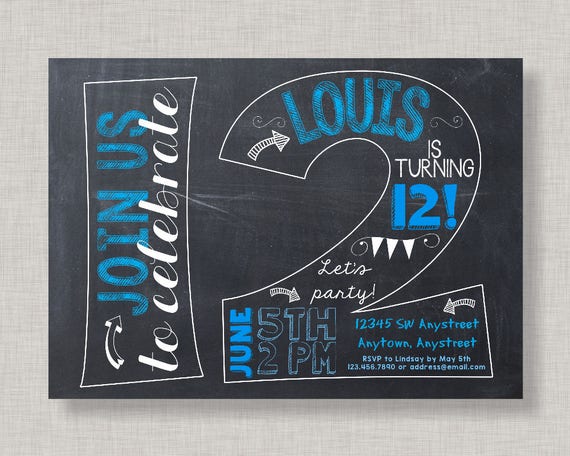 JOIN US
to celebrate
LOUIS
IS
TURNING
12!
Let's
party!
JUNE
5TH
2 PM
12345 SW Anystreet
Anytown, Anystreet
RSVP to Lindsay by May 5th
123.456.7890 or address@email.com